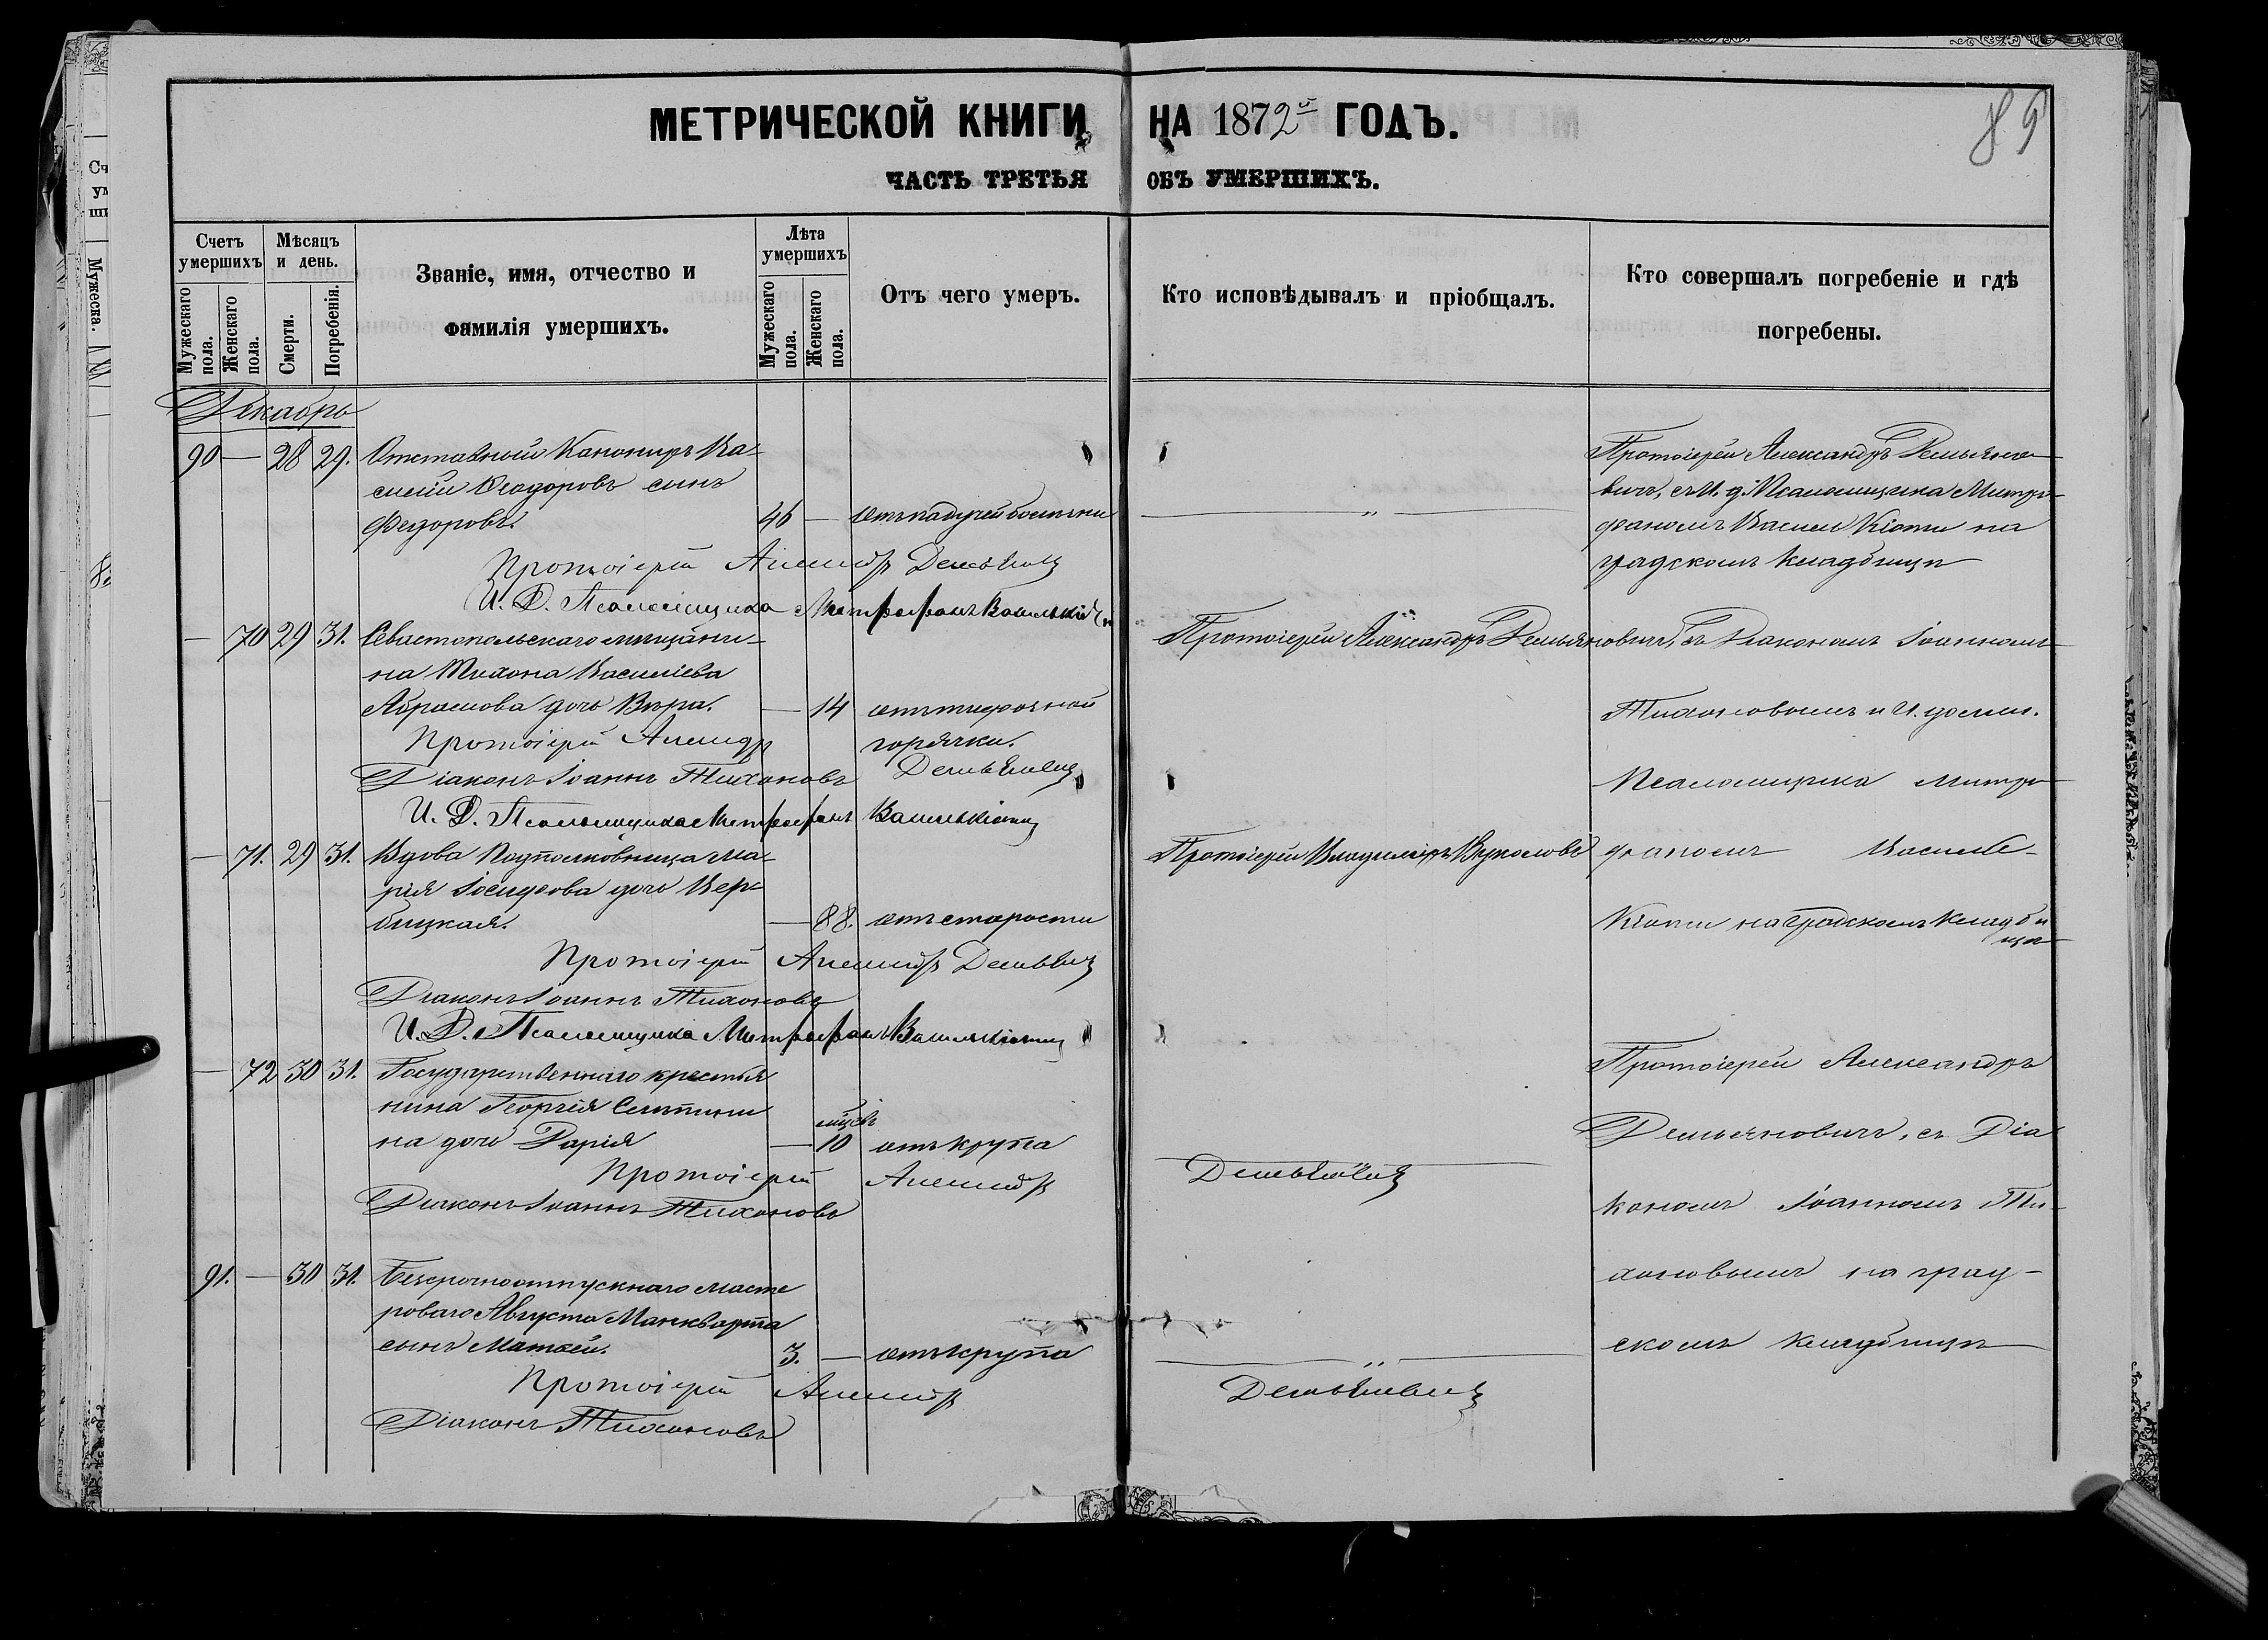 МЕТРИЧЕСКОЙ КНИГИ НА 1872й ГОДЪ.
89
ЧАСТЬ ТРЕТЬЯ ОБЪ УМЕРШИХЪ.
Счетъ умершихъ
Мужескаго пола.
Женскаго пола.
Мѣсяцъ и день.
Смерти.
Погребенія.
Званіе, имя, отчество и
фамилія умершихъ.
Лѣта умершихъ
Мужескаго пола.
Женскаго пола.
Отъ чего умеръ.
Кто исповѣдывалъ и пріобщалъ.
Кто совершалъ погребеніе и гдѣ
погребены.
Декабрь
90 — 28 29. Отставной Канониръ Ва-
силій Ѳеодоровъ сынъ
Федоровъ. 46 — отъ падучей болѣзни — „ —
Протоіерей Александръ Демьяно-
вичъ, съ И. д. Псаломщика Митро-
фаномъ Василь Кіоти на
градскомъ кладбищѣ
Протоіерей Александръ Демьяновичъ
И. Д. Псаломщика Митрофанъ Василькіоти
— 70 29 31. Севастопольскаго мѣщани-
на Тихона Василіева
Абрамова дочь Вѣра. — 14 отъ тифозной
горячки.
Протоіерей Александръ Демьяновичъ, съ Діакономъ Іоанномъ
Тихоновымъ и И. долж.
Псаломщика Митро-
Протоіерей Александръ Демьяновичъ
Діаконъ Іоаннъ Тихоновъ
И. Д. Псаломщика Митрофанъ Василькіоти
— 71. 29 31. Вдова Подполковница Ма-
рія Іосифова дочь Вер-
бицкая. — 88. отъ старости
Протоіерей Владиміръ Вуколовъ
фаномъ Василь-
Кіоти на градскомъ кладби
щѣ
Протоіерей Александръ Демьяновичъ
Діаконъ Іоаннъ Тихоновъ
И. Д. Псаломщика Митрофанъ Василькіоти
— 72 30 31. Государственнаго крестья
нина Георгія
на дочь Дарія — мцсвъ 10 отъ крупа
Протоіерей Александръ
Демьяновичъ, съ Діа
кономъ Іоанномъ Ти-
Протоіерей Александръ Демьяновичъ
Діаконъ Іоаннъ Тихоновъ
91. — 30 31. Безсрочноотпускнаго масте
роваго Августа Манкварта
сынъ Матвей. 3. — отъ крупа — „ —
хоновымъ на град-
скомъ кладбищѣ
Протоіерей Александръ Демьяновичъ
Діаконъ Тихоновъ